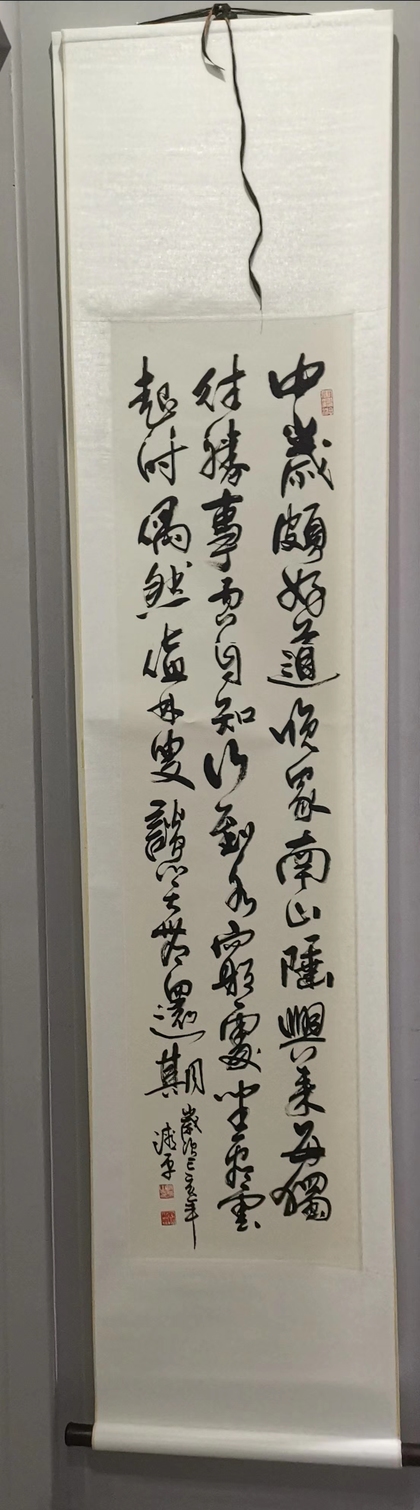 中歲頗好道晚家南山陲興来每獨
往勝事空自知行到水窮處坐看雲
起时偶然值林叟談笑無還期
歲次己亥年